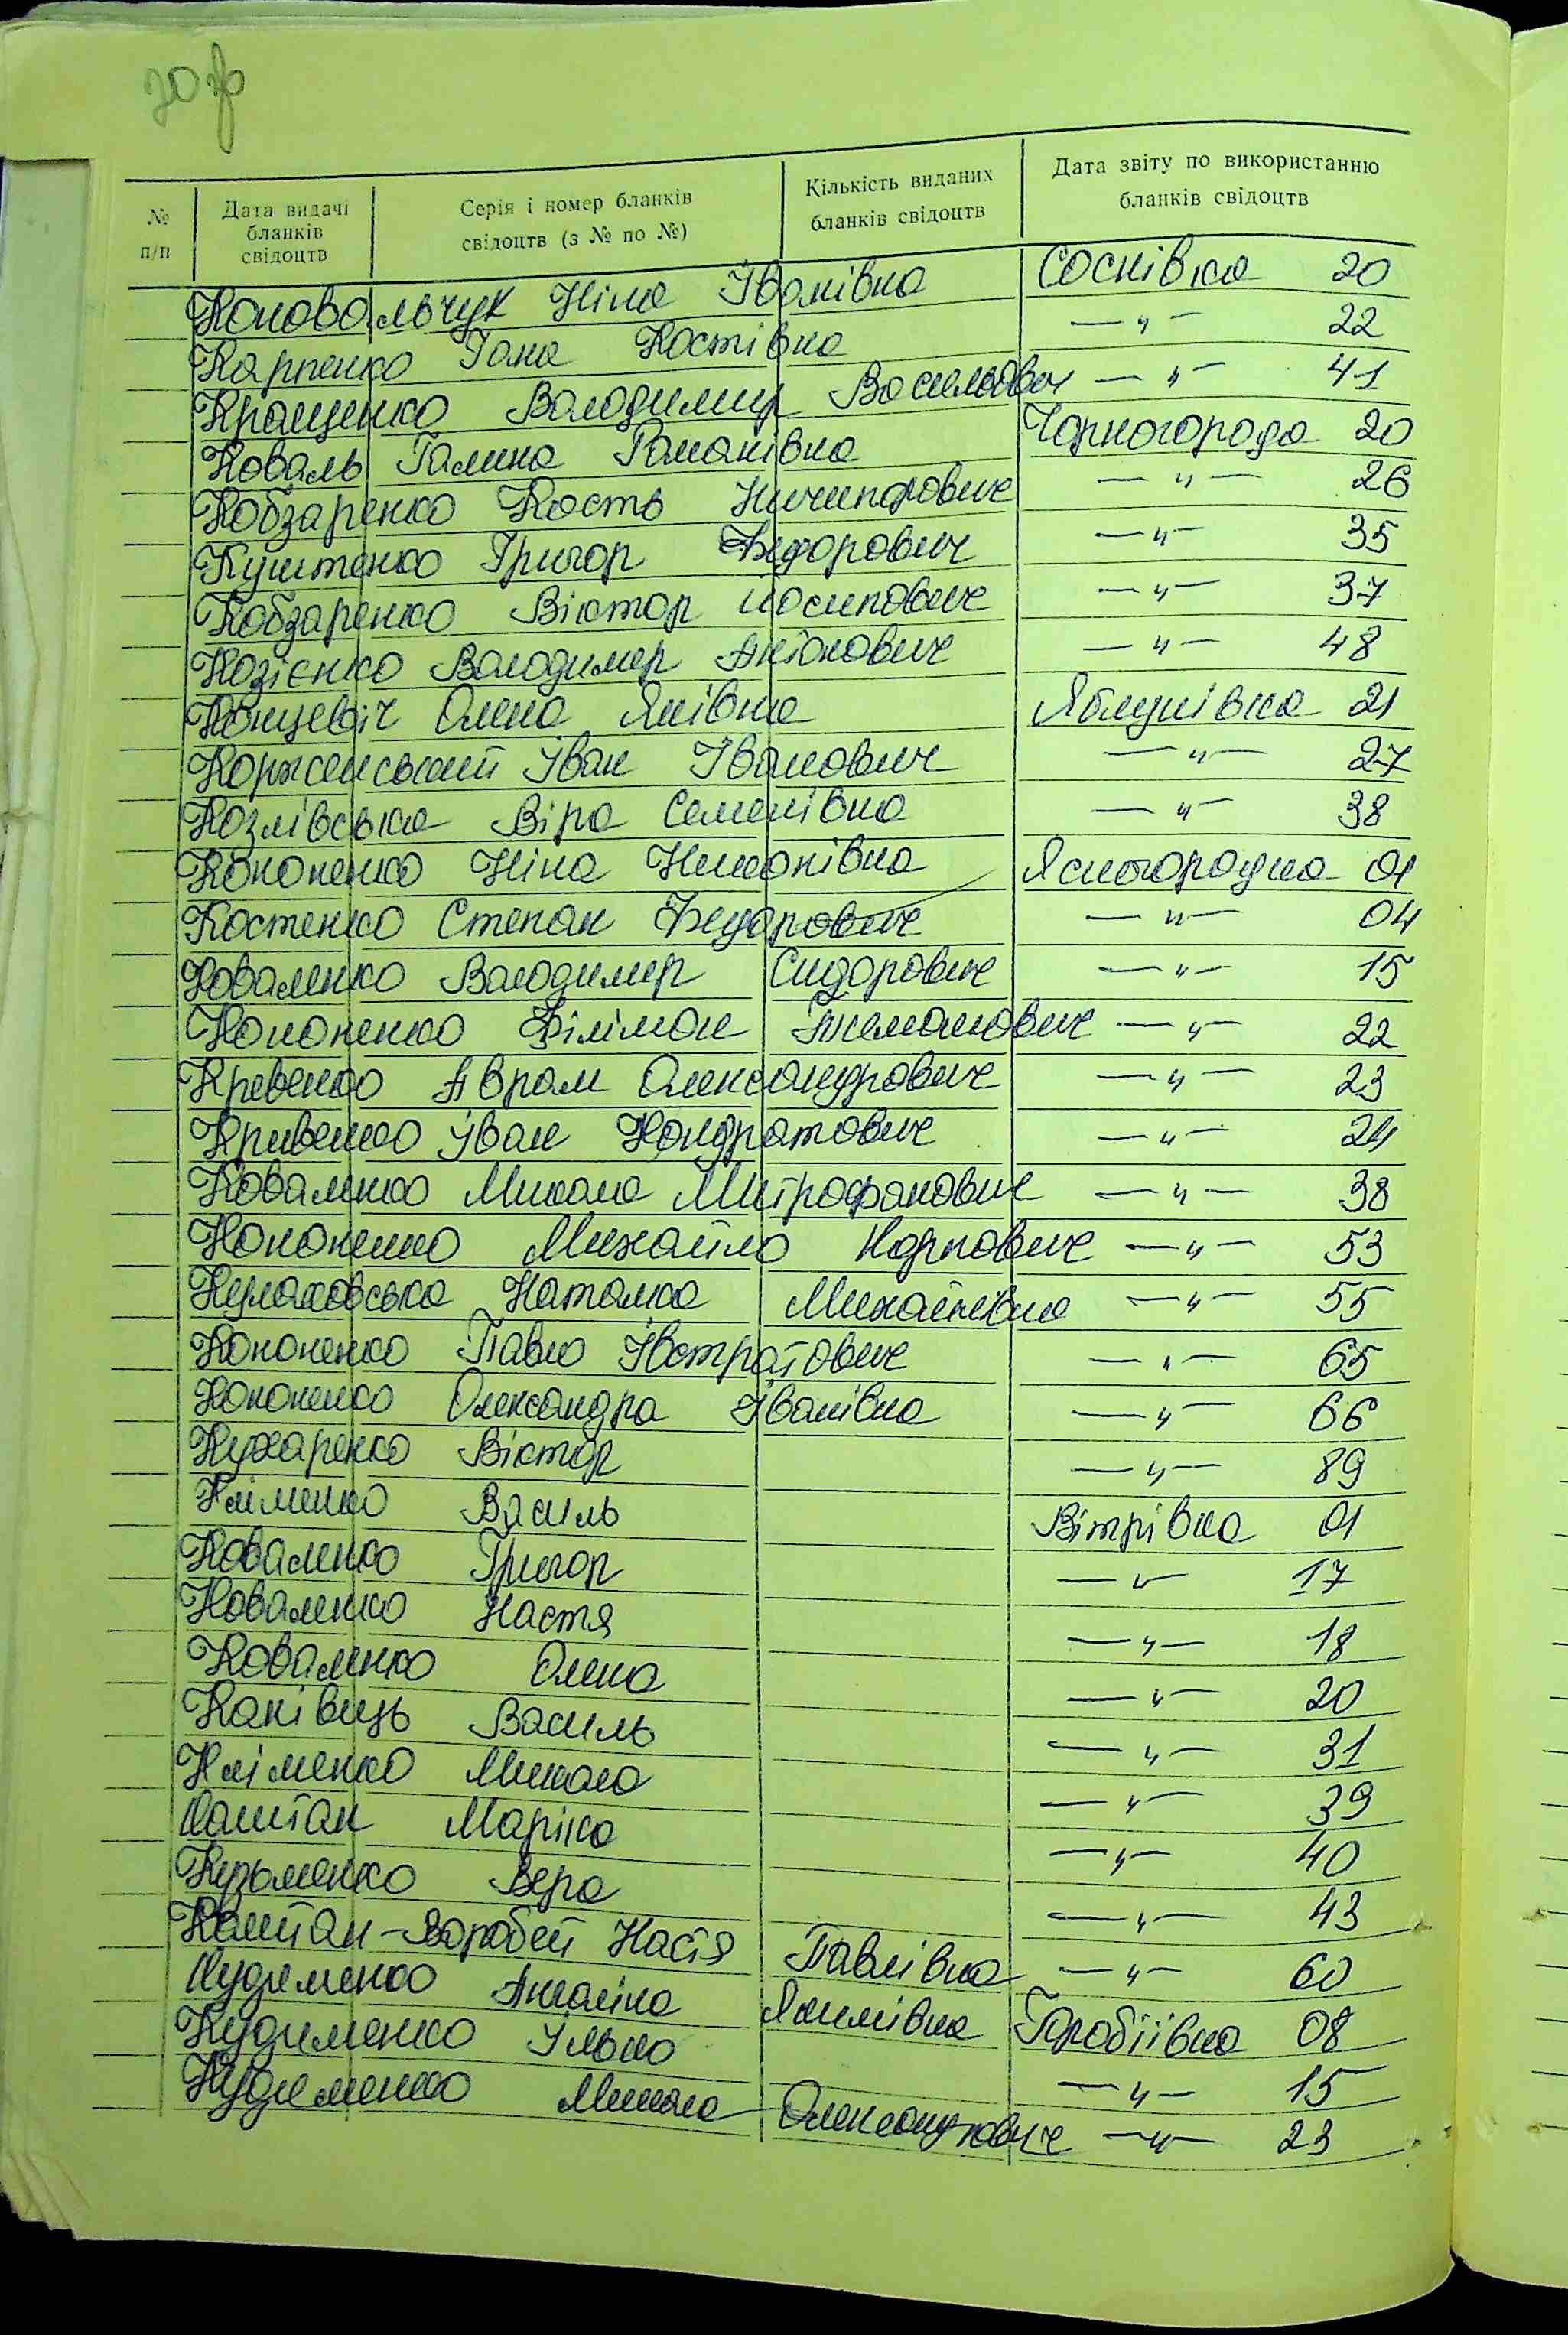 № п/п
Дата видачі бланків свідоцтв
Серія і номер бланків свідоцтв (з № по №)
Кількість виданих бланків свідоцтв
Дата звіту по використанню бланків свідоцтв
Коновальчук Ніна Іванівна Соснівка 20
Карпенко Гана Костівна —〃— 22
Кращенко Володимир Васильович —〃— 41
Коваль Галина Романівна Чорногорода 20
Кобзаренко Кость Ничипорович —〃— 26
Куштенко Григор Федорович —〃— 35
Кобзаренко Віктор Йосипович —〃— 37
Козієнко Володимер Антонович —〃— 48
Концевіч Олена Яківна Яблунівка 21
Корженський Іван Іванович —〃— 27
Козлівська Віра Семенівна —〃— 38
Кононенко Ніна Никонівна Ясногородка 01
Костенко Степан Федорович —〃— 04
Коваленко Володимир Сидорович —〃— 15
Кононенко Філімон —〃— 22
Кревенко Аврам Олександрович —〃— 23
Кривенко Іван Кондратович —〃— 24
Коваленко Микола Митрофанович —〃— 38
Кононенко Михайло Карпович —〃— 53
Наталка Михайлівна —〃— 55
Кононенко Павло Івстратович —〃— 65
Кононенко Олександра Іванівна —〃— 66
Кухаренко Віктор —〃— 89
Кліменко Василь Вітрівка 01
Коваленко Григор —〃— 17
Коваленко Настя —〃— 18
Коваленко Олена —〃— 20
Канівець Василь —〃— 31
Кліменко Микола —〃— 39
Каштан Марійка —〃— 40
Кузьменко Вера —〃— 43
Каштан-Воробей Настя Павлівна —〃— 60
Кудименко Якимівна Горобіївка 08
Кудименко Ілько —〃— 15
Кудименко Микола Олександрович —〃— 23